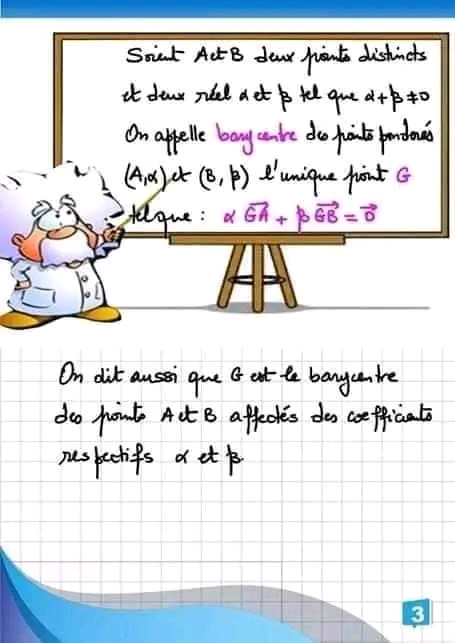 Soient A et B deux points distincts
et deux réel α et β tel que α+β≠0
On appelle barycentre des points pondérés
(A,α) et (B,β) l'unique point G
telque : α GA⃗ + β GB⃗ = 0⃗
On dit aussi que G est le barycentre
des points A et B affectés des coefficients
respectifs α et β.
3